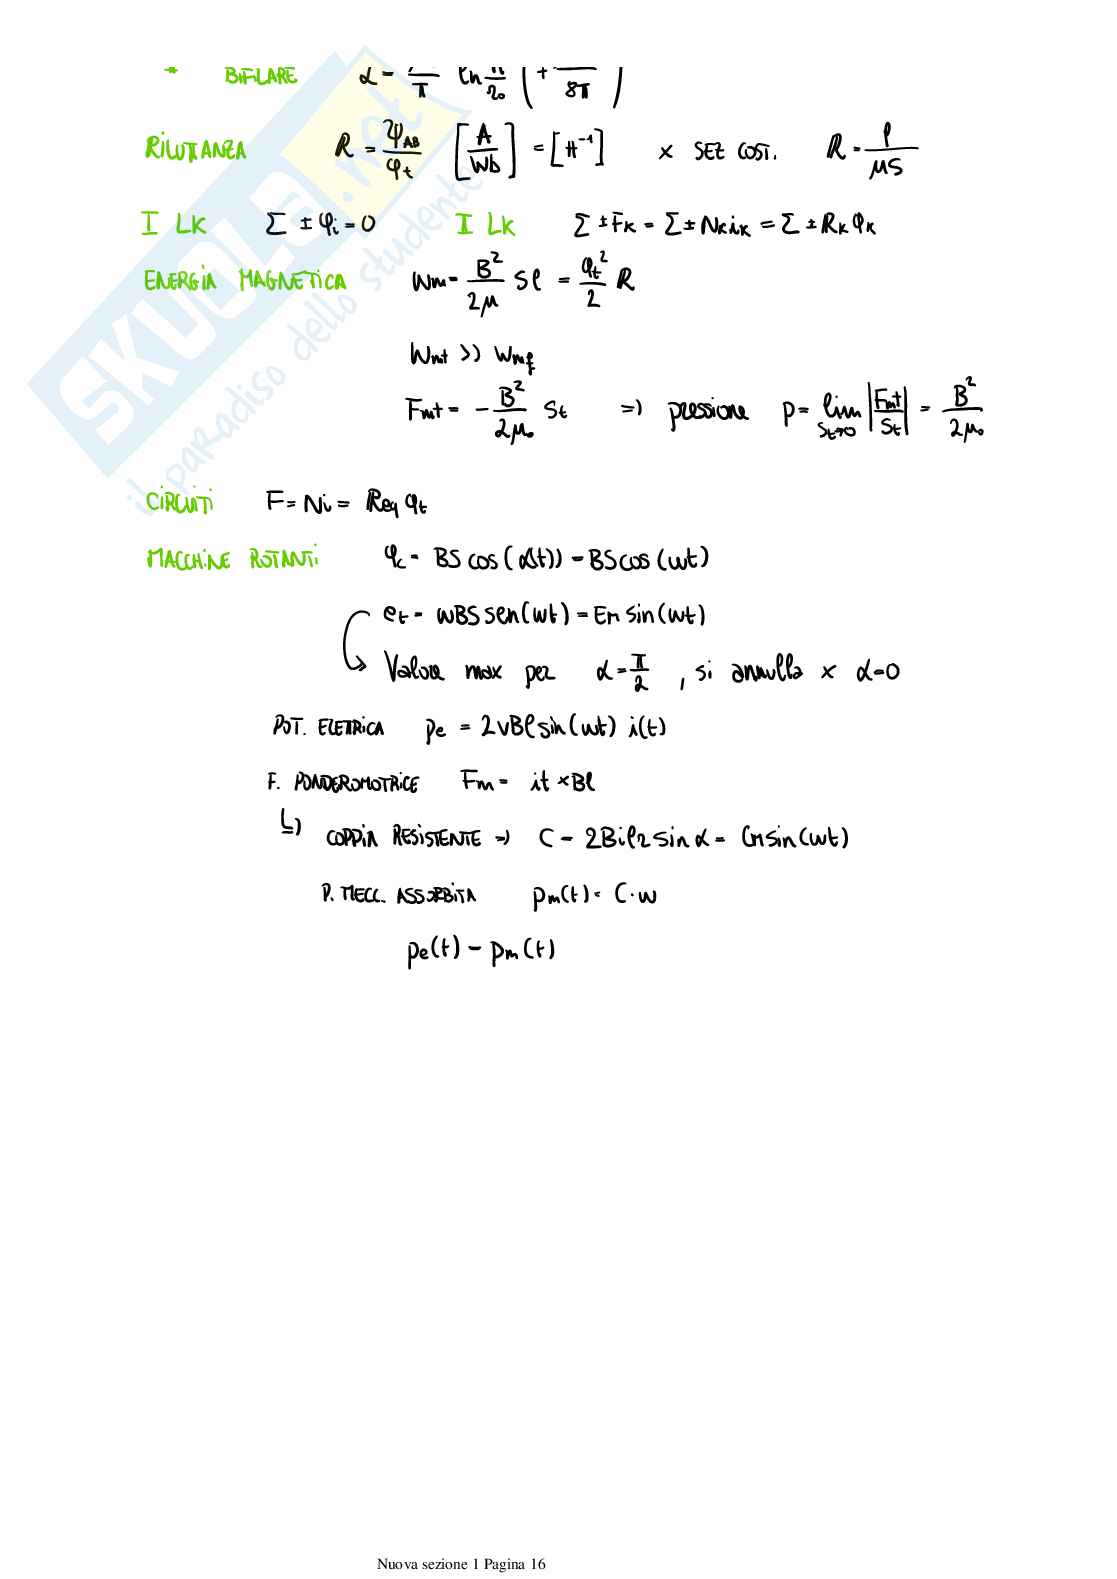 * BIFILARE α = /π ln /r₀ ( + /8π )
RILUTTANZA R = ψAB/φt [A/Wb] = [H⁻¹] x SEZ COST. R = l/μS
I LK Σ ± φi = 0 I LK Σ ± Fk = Σ ± Nkik = Σ ± Rk φk
ENERGIA MAGNETICA Wm = B²/2μ Sl = φt²/2 R
Wmt >> Wmf
Fmt = - B²/2μ₀ St => pressione p = lim St→0 |Fmt/St| = B²/2μ₀
CIRCUITI F = Ni = Req φt
MACCHINE ROTANTI φc = BS cos(α(t)) = BS cos(wt)
et = wBS sen(wt) = Em sin(wt)
Valore max per α = π/2, si annulla x α = 0
POT. ELETTRICA pe = 2vBl sin(wt) i(t)
F. PONDEROMOTRICE Fm = it × Bl
↳ COPPIA RESISTENTE => C = 2Bilr sin α = Cm sin(wt)
P. MECC. ASSORBITA pm(t) = C·w
pe(t) = pm(t)
SKUOLA.net
il paradiso dello studente
Nuova sezione 1 Pagina 16